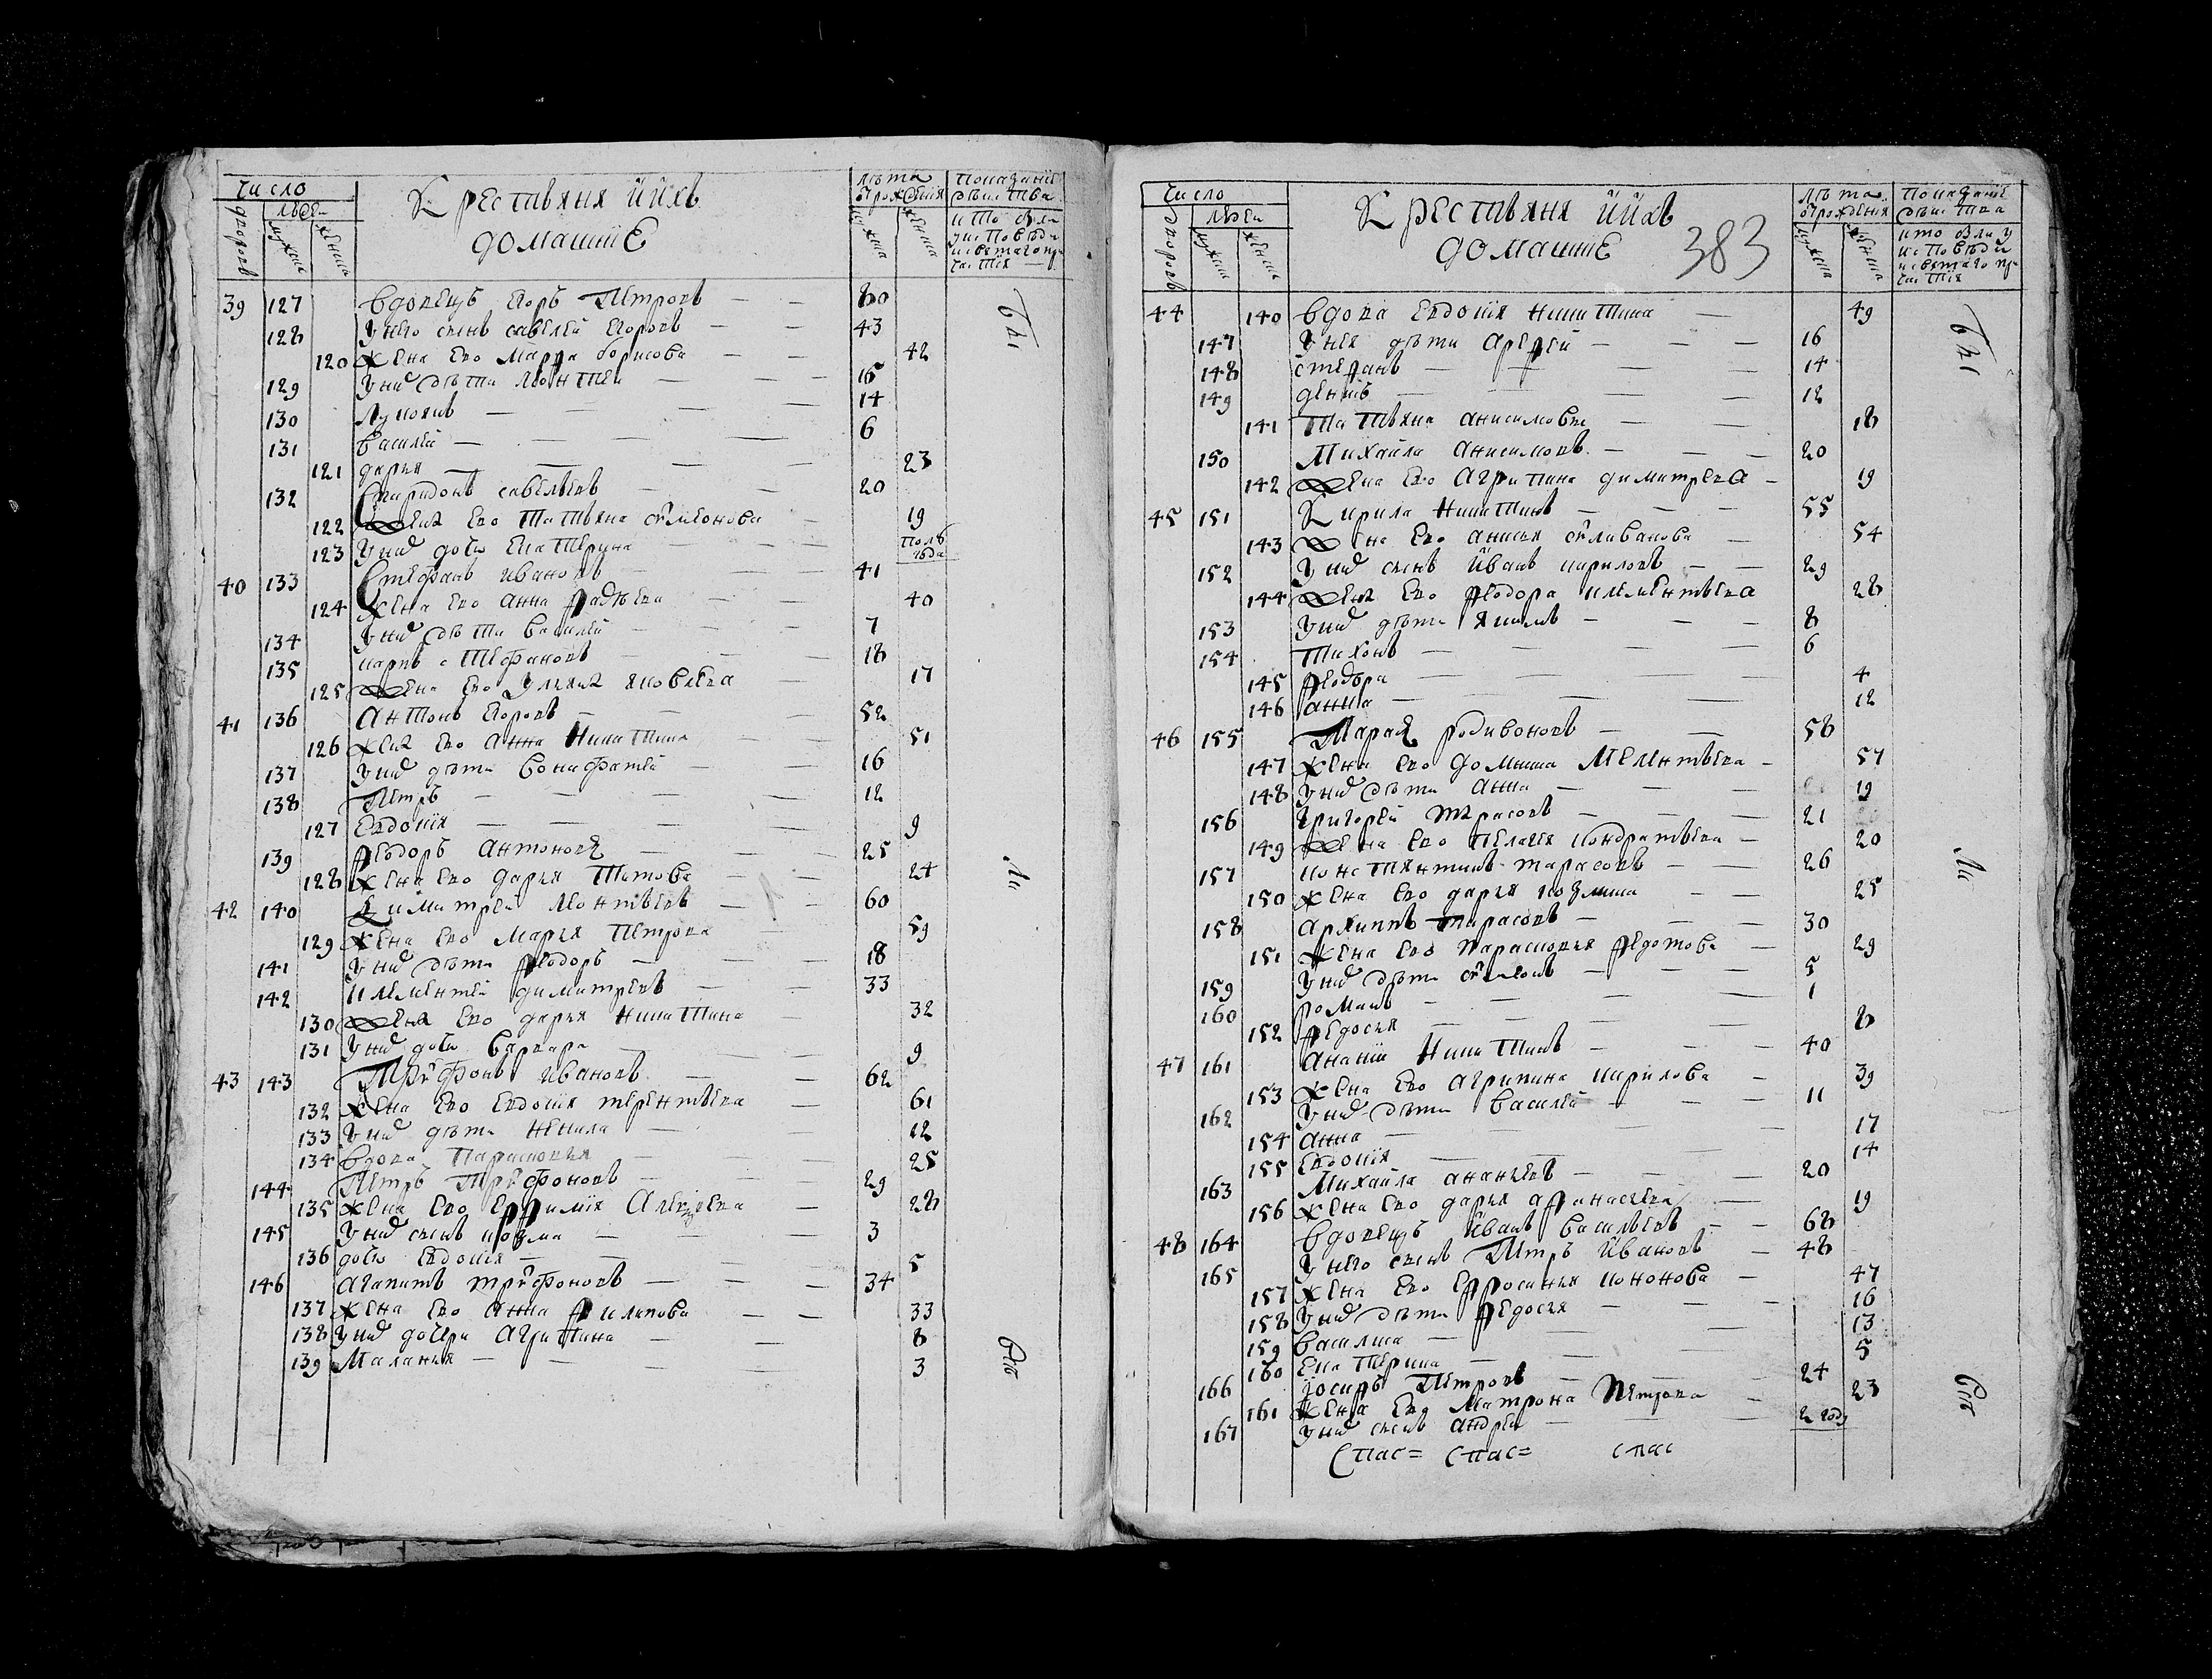 Число
дворовъ
людей
мужеска
женска
Крестьяня и ихъ
домашние
лѣта от рождения
мужеска
женска
Показание действа кто былъ у исповеди и святаго причастия
39 127 вдовецъ Егоръ Петровъ — — 80
128 У него сынъ савелей Егоровъ — — 43
120 Жена Ево Марфа борисова — — 42
129 У них дѣти леонтеи — — 15
130 Лукоянъ — — 14
131 василей — — 6
121 дарья — — 23
132 Спиридонъ савельевъ — — 20
122 Жена Ево Татьяна сѵмеонова 19
123 У них дочь Екатерина полъ года
40 133 Стефанъ Ивановъ — 41
124 Жена Ево анна фадѣева — 40
134 У них дѣти василей — 7
135 карпъ стефановъ — 18
125 Жена Ево Ульяна яковлева — 17
41 136 антонъ Егоровъ — 52
126 Жена Ево анна Никитина — 51
137 У них дѣти вонифатей — 16
138 Петръ — 12
127 Евдокия — 9
139 феодоръ антоновъ — 25
128 Жена Ево дарья Титова — 24
42 140 димитрей леонтьевъ — 60
129 Жена Ево Марья Петрова — 59
141 У них дѣти феодоръ — 18
142 клементей димитревъ — 33
130 Жена Ево дарья Никитина — 32
131 У них дочь варвара — 9
43 143 Трѵфонъ Ивановъ — 62
132 Жена Ево Евдокия терентьева — 61
133 У них дѣти ненила — 12
134 вдова Парасковья — 25
144 Петръ Трѵфоновъ — 29
135 Жена Ево Еффимия Алексеева — 28
145 У них сынъ козма — 3
136 дочь Евдокия — 5
146 агапитъ трѵфоновъ — 34
137 Жена Ево анна филипова — 33
138 У них дочери агрипина — 8
139 Маланья — 3
Число
дворовъ
людей
мужеска
женска
Крестьяня и ихъ
домашние
383
лѣта от рождения
мужеска
женска
Показание действа кто былъ у исповеди и святаго причастия
44 140 вдова Евдокия Никитина — 49
147 У нея дѣти арефей — 16
148 стефанъ — 14
149 денисъ — 12
141 Татьяна анисимовы — 18
150 Михайла анисимовъ — 20
142 Жена Ево агрипина димитрева — 19
45 151 Кирила Никитинъ — 55
143 Жена Ево анисья сѵливанова — 54
152 У них сынъ Иванъ кириловъ — 29
144 Жена Ево феодора клементьева 28
153 У них дѣти якимъ — 8
154 Тихонъ — 6
145 феодора — 4
146 анна — 12
46 155 Тарасъ родивоновъ — 58
147 Жена Ево домника Мелентьева — 57
148 У них дѣти анна — 19
156 григорей тарасовъ — 21
149 Жена Ево Пелагея кондратьева — 20
157 константинъ тарасовъ — 26
150 Жена Ево дарья козмина — 25
158 архиппъ тарасовъ — 30
151 Жена Ево парасковья федотова — 29
159 У них дѣти сѵмеонъ — 5
160 романъ — 1
152 федосья — 8
47 161 ананий Никитинъ — 40
153 Жена Ево агрипина кирилова — 39
162 У них дѣти василей — 11
154 анна — 17
155 Евдокия — 14
163 Михайла ананьевъ — 20
156 Жена Ево дарья афанасьева — 19
48 164 вдовецъ Иванъ васильевъ — 68
165 У него сынъ Петръ Ивановъ — 48
157 Жена Ево Ефросинья кононова — 47
158 У них дѣти федосья — 16
159 василиса — 13
160 Екатерина — 5
166 Іосифъ Петровъ — 24
161 Жена Ево Матрона Петрова — 23
167 У них сынъ андрей — 2 году
Спас= спас= спас